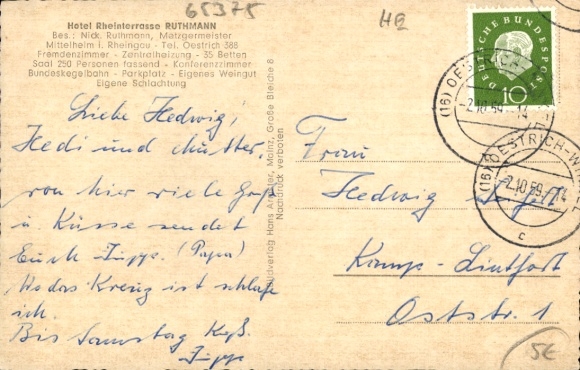 65375
HQ
Hotel Rheinterrasse RUTHMANN
Bes.: Nick. Ruthmann, Metzgermeister
Mittelheim i. Rheingau - Tel. Oestrich 388
Fremdenzimmer - Zentralheizung - 35 Betten
Saal 250 Personen fassend - Konferenzzimmer
Bundeskegelbahn - Parkplatz - Eigenes Weingut
Eigene Schlachtung
Liebe Hedwig,
Hedi und Mutter.
von hier viele
u. Küsse sendet
Euch Jupp. (Papa)
Wo das Kreuz ist schlafe
ich.
Bis Samstag
Jupp
Bildverlag Hans Mainz, Große Bleiche 8
Nachdruck verboten
DEUTSCHE BUNDESPOST
10
(16) OESTRICH
-2.10.59-14
(16) OESTRICH-WINKEL
-2.10.59-14
c
Frau
Hedwig
Kamp-Lintfort
Oststr. 1
5€